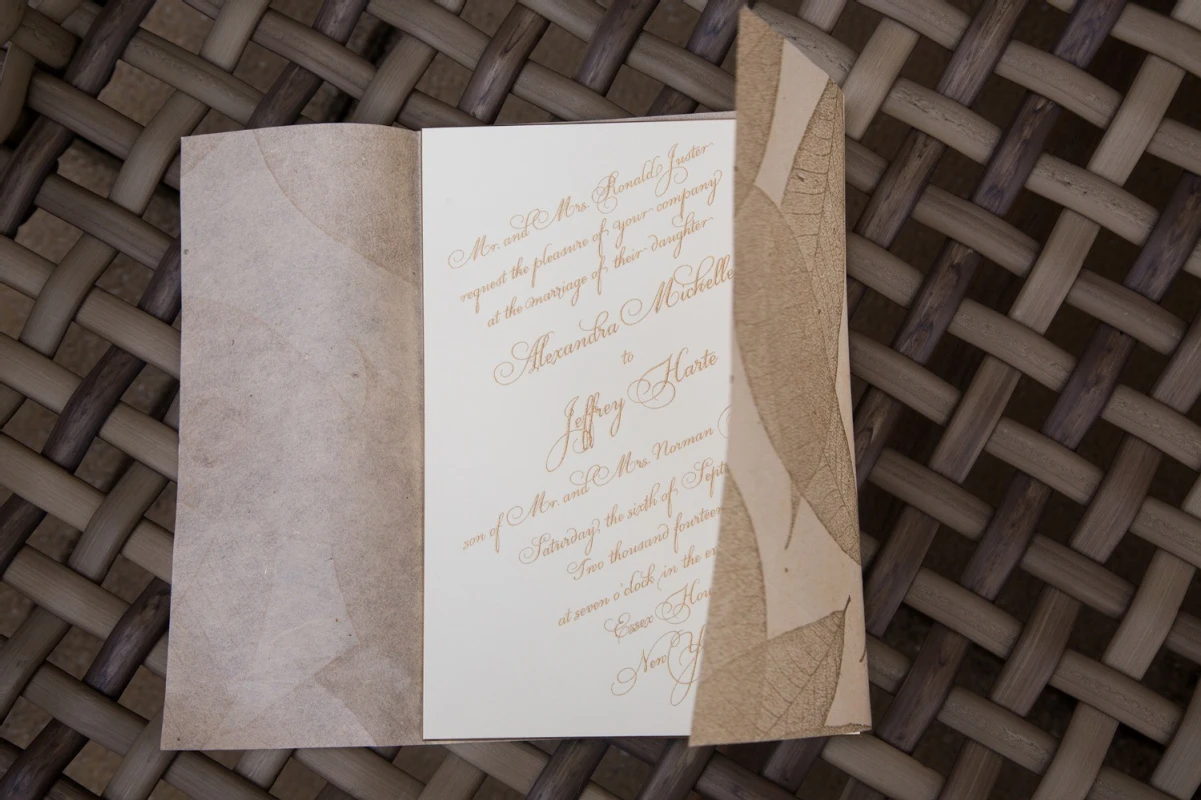 Mr. and Mrs. Ronald Juster
request the pleasure of your company
at the marriage of their daughter
Alexandra Michelle
to
Jeffrey Harte
son of Mr. and Mrs. Norman
Saturday, the sixth of Septe
Two thousand fourteen
at seven o'clock in the e
Essex Hou
New Y